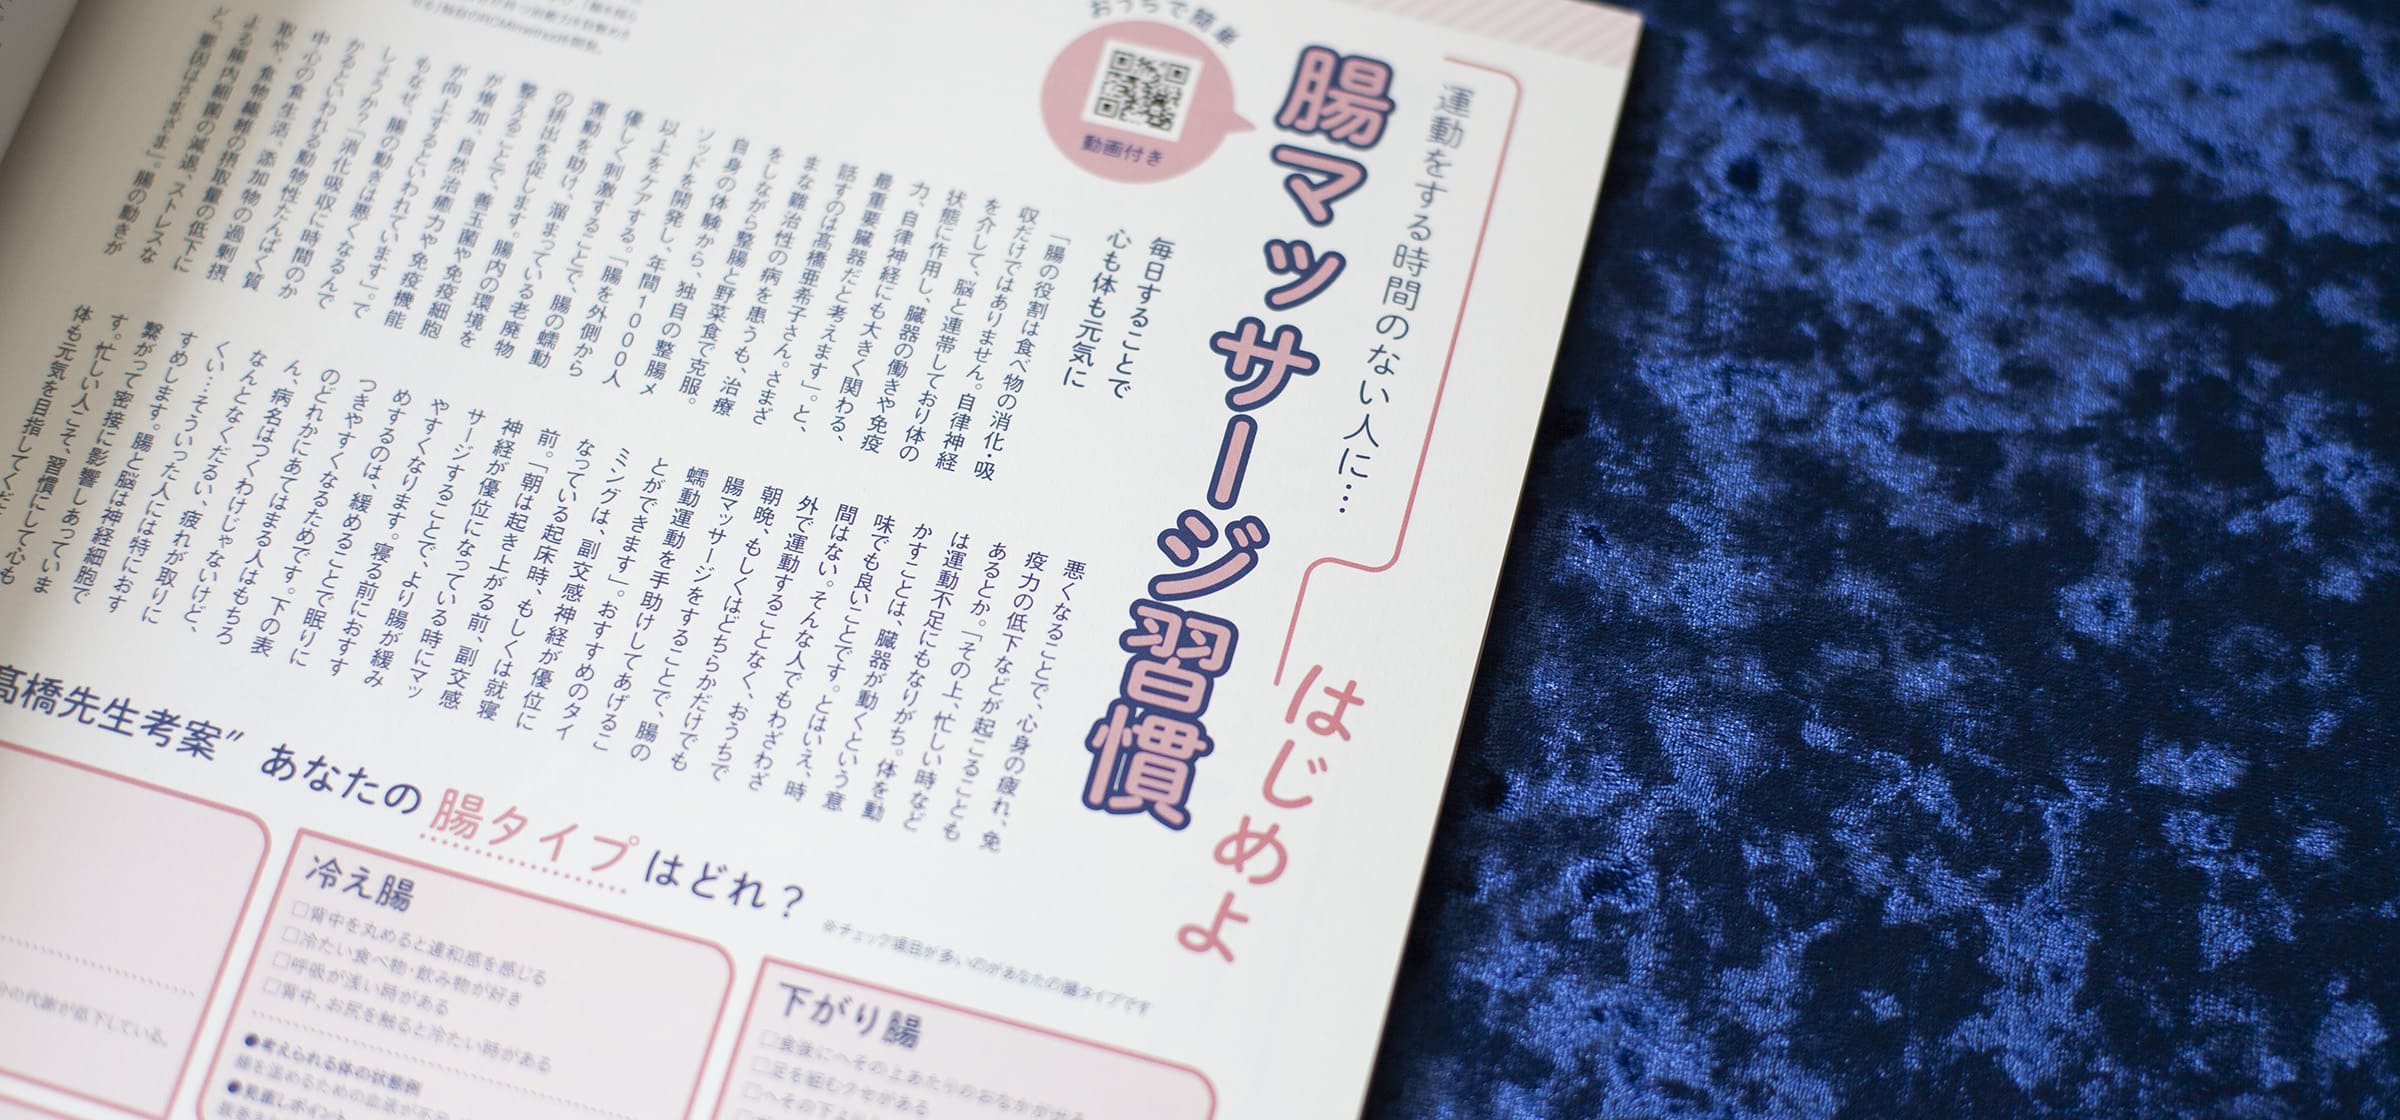 運動をする時間のない人に…
はじめよ
腸マッサージ習慣
おうちで簡単
動画付き
毎日することで
心も体も元気に
「腸の役割は食べ物の消化・吸
収だけではありません。自律神経
を介して、脳と連帯しており体の
状態に作用し、臓器の働きや免疫
力、自律神経にも大きく関わる、
最重要臓器だと考えます」。と、
話すのは髙橋亜希子さん。さまざ
まな難治性の病を患うも、治療
をしながら整腸と野菜食で克服。
自身の体験から、独自の整腸メ
ソッドを開発し、年間1000人
以上をケアする。「腸を外側から
優しく刺激することで、腸の蠕動
運動を助け、溜まっている老廃物
の排出を促します。腸内の環境を
整えることで、善玉菌や免疫細胞
が増加。自然治癒力や免疫機能
が向上するといわれています」。で
もなぜ、腸の動きは悪くなるんで
しょうか？「消化吸収に時間のか
かるといわれる動物性たんぱく質
中心の食生活、添加物の過剰摂
取や、食物繊維の摂取量の低下に
よる腸内細菌の減退、ストレスな
ど、要因はさまざま」。腸の動きが
悪くなることで、心身の疲れ、免
疫力の低下などが起こることも
あるとか。「その上、忙しい時など
は運動不足にもなりがち。体を動
かすことは、臓器が動くという意
味でも良いことです。とはいえ、時
間はない。そんな人でもわざわざ
外で運動することなく、おうちで
腸マッサージをすることで、腸の
蠕動運動を手助けしてあげるこ
とができます」。おすすめのタイ
ミングは、副交感神経が優位に
なっている起床時、もしくは就寝
前。「朝は起き上がる前、副交感
神経が優位になっている時にマッ
サージすることで、より腸が緩み
やすくなります。寝る前におすす
めするのは、緩めることで眠りに
つきやすくなるためです。下の表
のどれかにあてはまる人はもちろ
ん、病名はつくわけじゃないけど、
なんとなくだるい、疲れが取りに
くい…そういった人には特におす
すめします。腸と脳は神経細胞で
繋がって密接に影響しあっていま
す。忙しい人こそ、習慣にして心も
体も元気を目指してくだ
髙橋先生考案” あなたの 腸タイプ はどれ？
※チェック項目が多いのがあなたの腸タイプです
冷え腸
□背中を丸めると違和感を感じる
□冷たい食べ物・飲み物が好き
□呼吸が浅い時がある
□背中、お尻を触ると冷たい時がある
●考えられる体の状態例
下がり腸
□食後にへその上あたりのおなかが出る
□足を組むクセがある
の代謝が低下している。